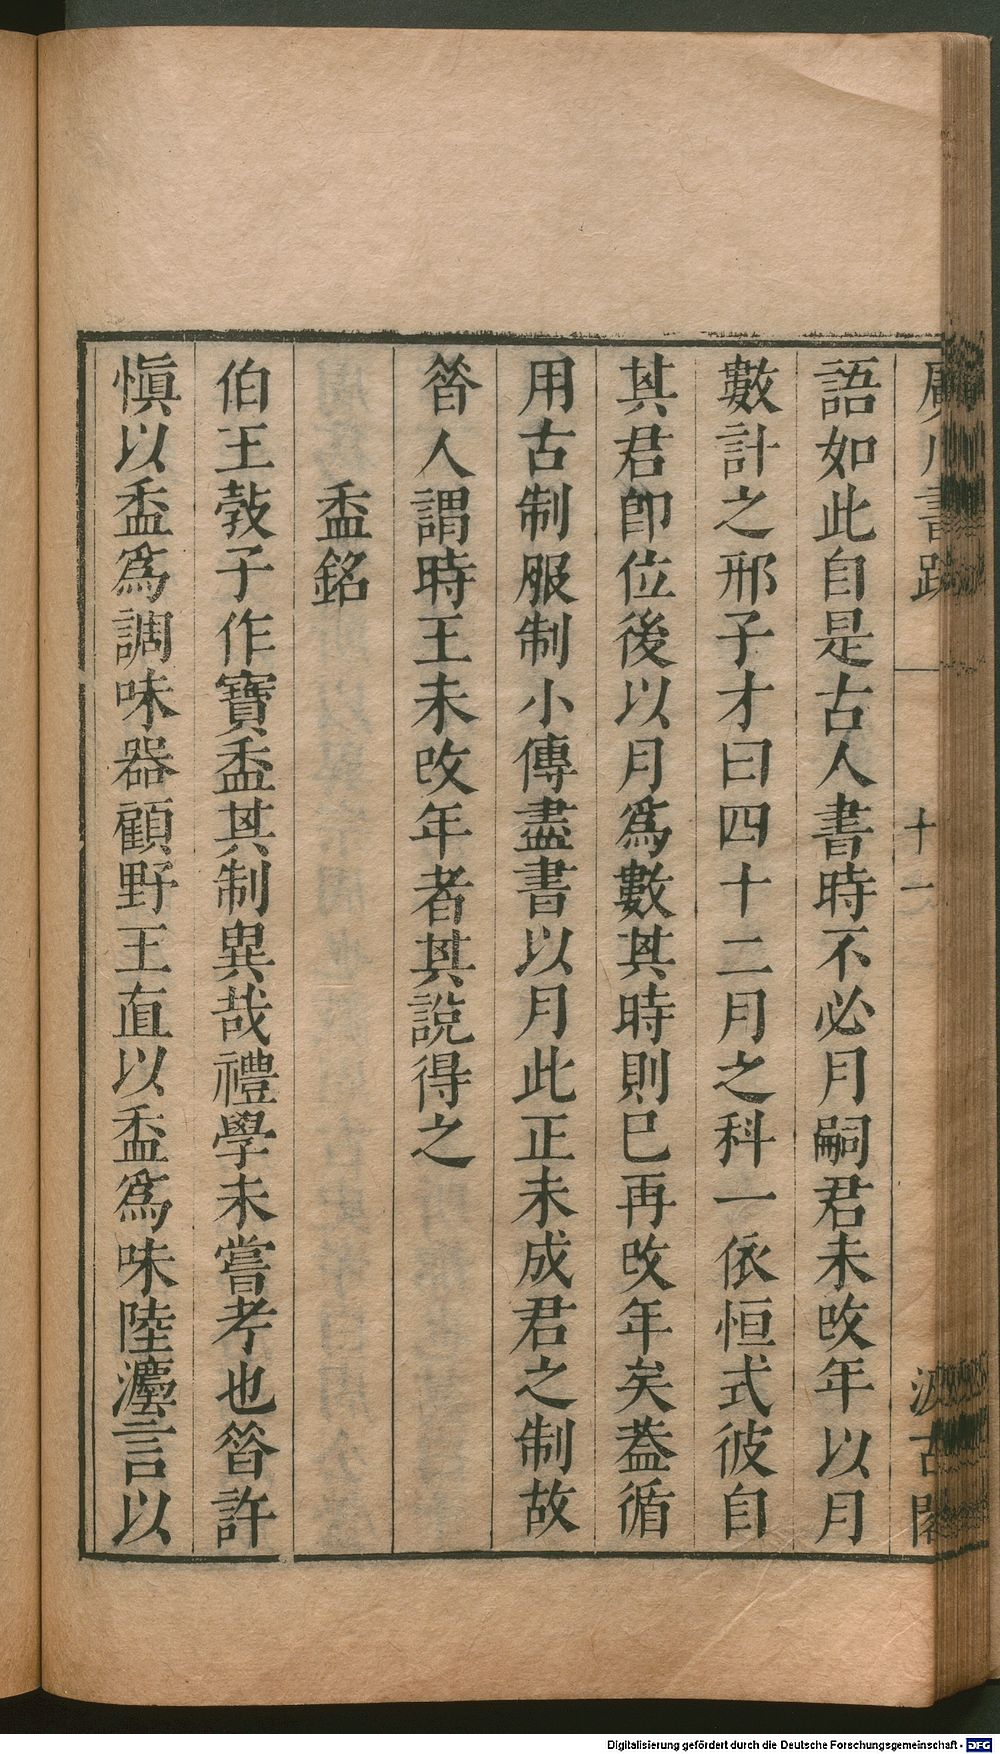 廣川書跋
十一
汲古閣
語如此自是古人書時不必月嗣君未改年以月
數計之邢子才曰四十二月之科一依恒式彼自
其君卽位後以月爲數其時則已再改年矣葢循
用古制服制小傳盡書以月此正未成君之制故
晉人謂時王未改年者其說得之
盉銘
伯王敦子作寶盉其制異哉禮學未嘗考也晉許
愼以盉爲調味器顧野王直以盉爲味陸灋言以
Digitalisierung gefördert durch die Deutsche Forschungsgemeinschaft - DFG